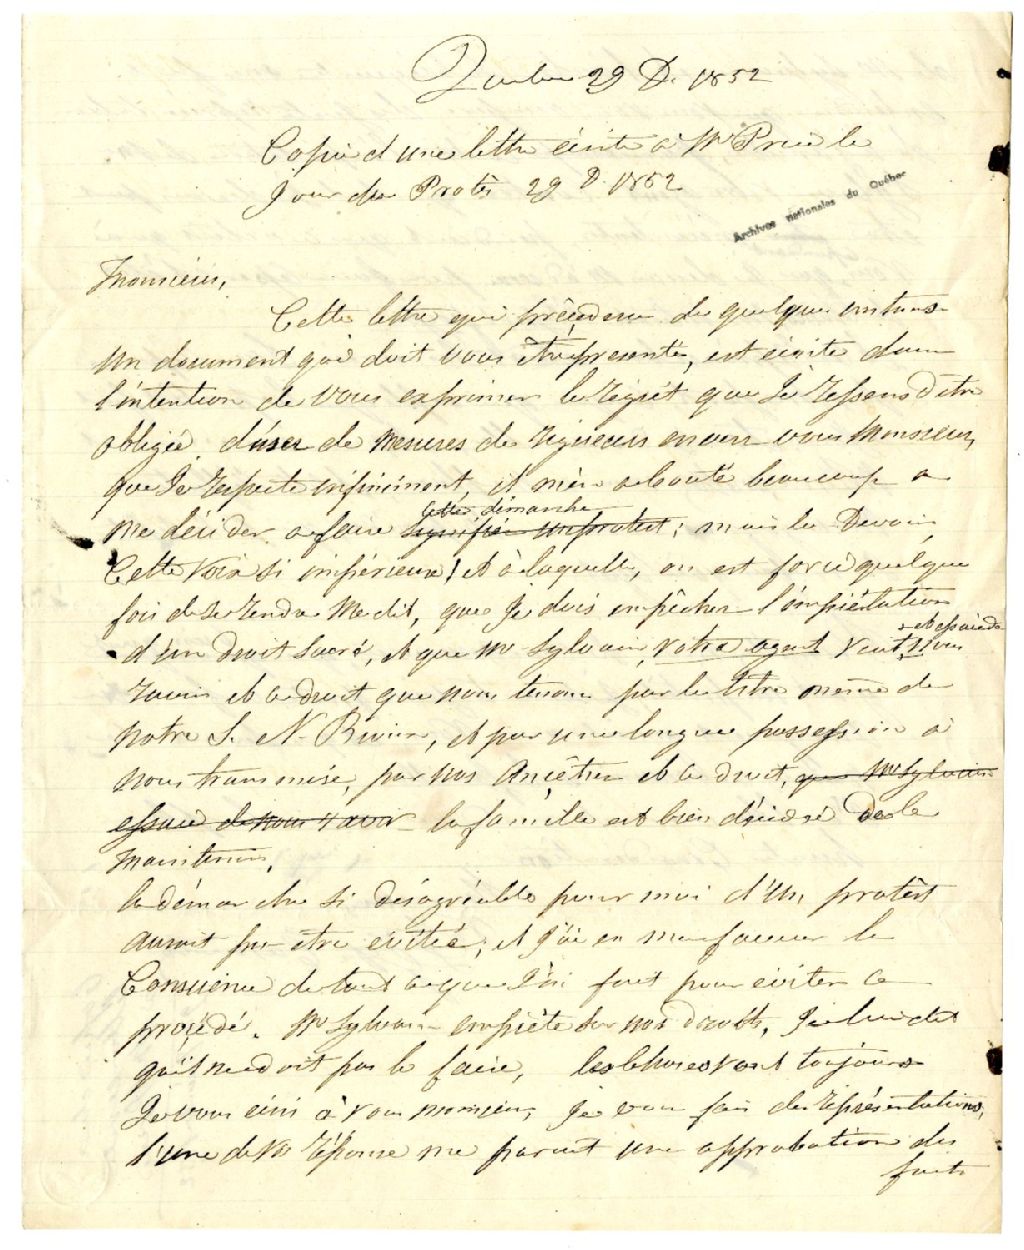 Québec 29 D. 1852
Copie d'une lettre écrite à Mr Price le
Jour du Protêt 29 D. 1852
Archives nationales du Québec
Monsieur,
Cette lettre qui précédera de quelque instans
un document qui doit vous être presenté, est écrite dans
l'intention de vous exprimer le regrèt que Je ressens d'être
obligée d'user de mesures de rigueurs envers vous Monsieur,
que Je respecte infiniment, il m'en a couté beaucoup a
cette démarche
me décider a faire signifier un protest; mais le Devoir,
Cette voix si impérieuse! et à laquelle, on est forcé quelque
fois de se rendre me dit, que Je dois empêcher l'empiètation
et essaie de
d'un droit sacré, et que Mr Sylvain, votre agent veut, nous
ravir et ce droit que nous tenons par le titre même de
notre S. N. Rivière, et par une longue possession a
nous transmise, par nos Ancêtres et ce droit, que Mr Sylvain
essaie de nous ravir la famille est bien décidé de le
maintenir,
la démarche si désagréable pour moi d'un protêt
auroit pu être évitée, et J'ai en ma faveur la
Conscience de tout ce que J'ai fait pour éviter ce
procédé. Mr Sylvain empiète sur nos droits, Je lui dit
qu'il ne doit pas le faire, les choses vont toujours
Je vous écris à vous monsieur, Je vous fais des représentations,
l'une de vos réponse me parait une approbation des
faits